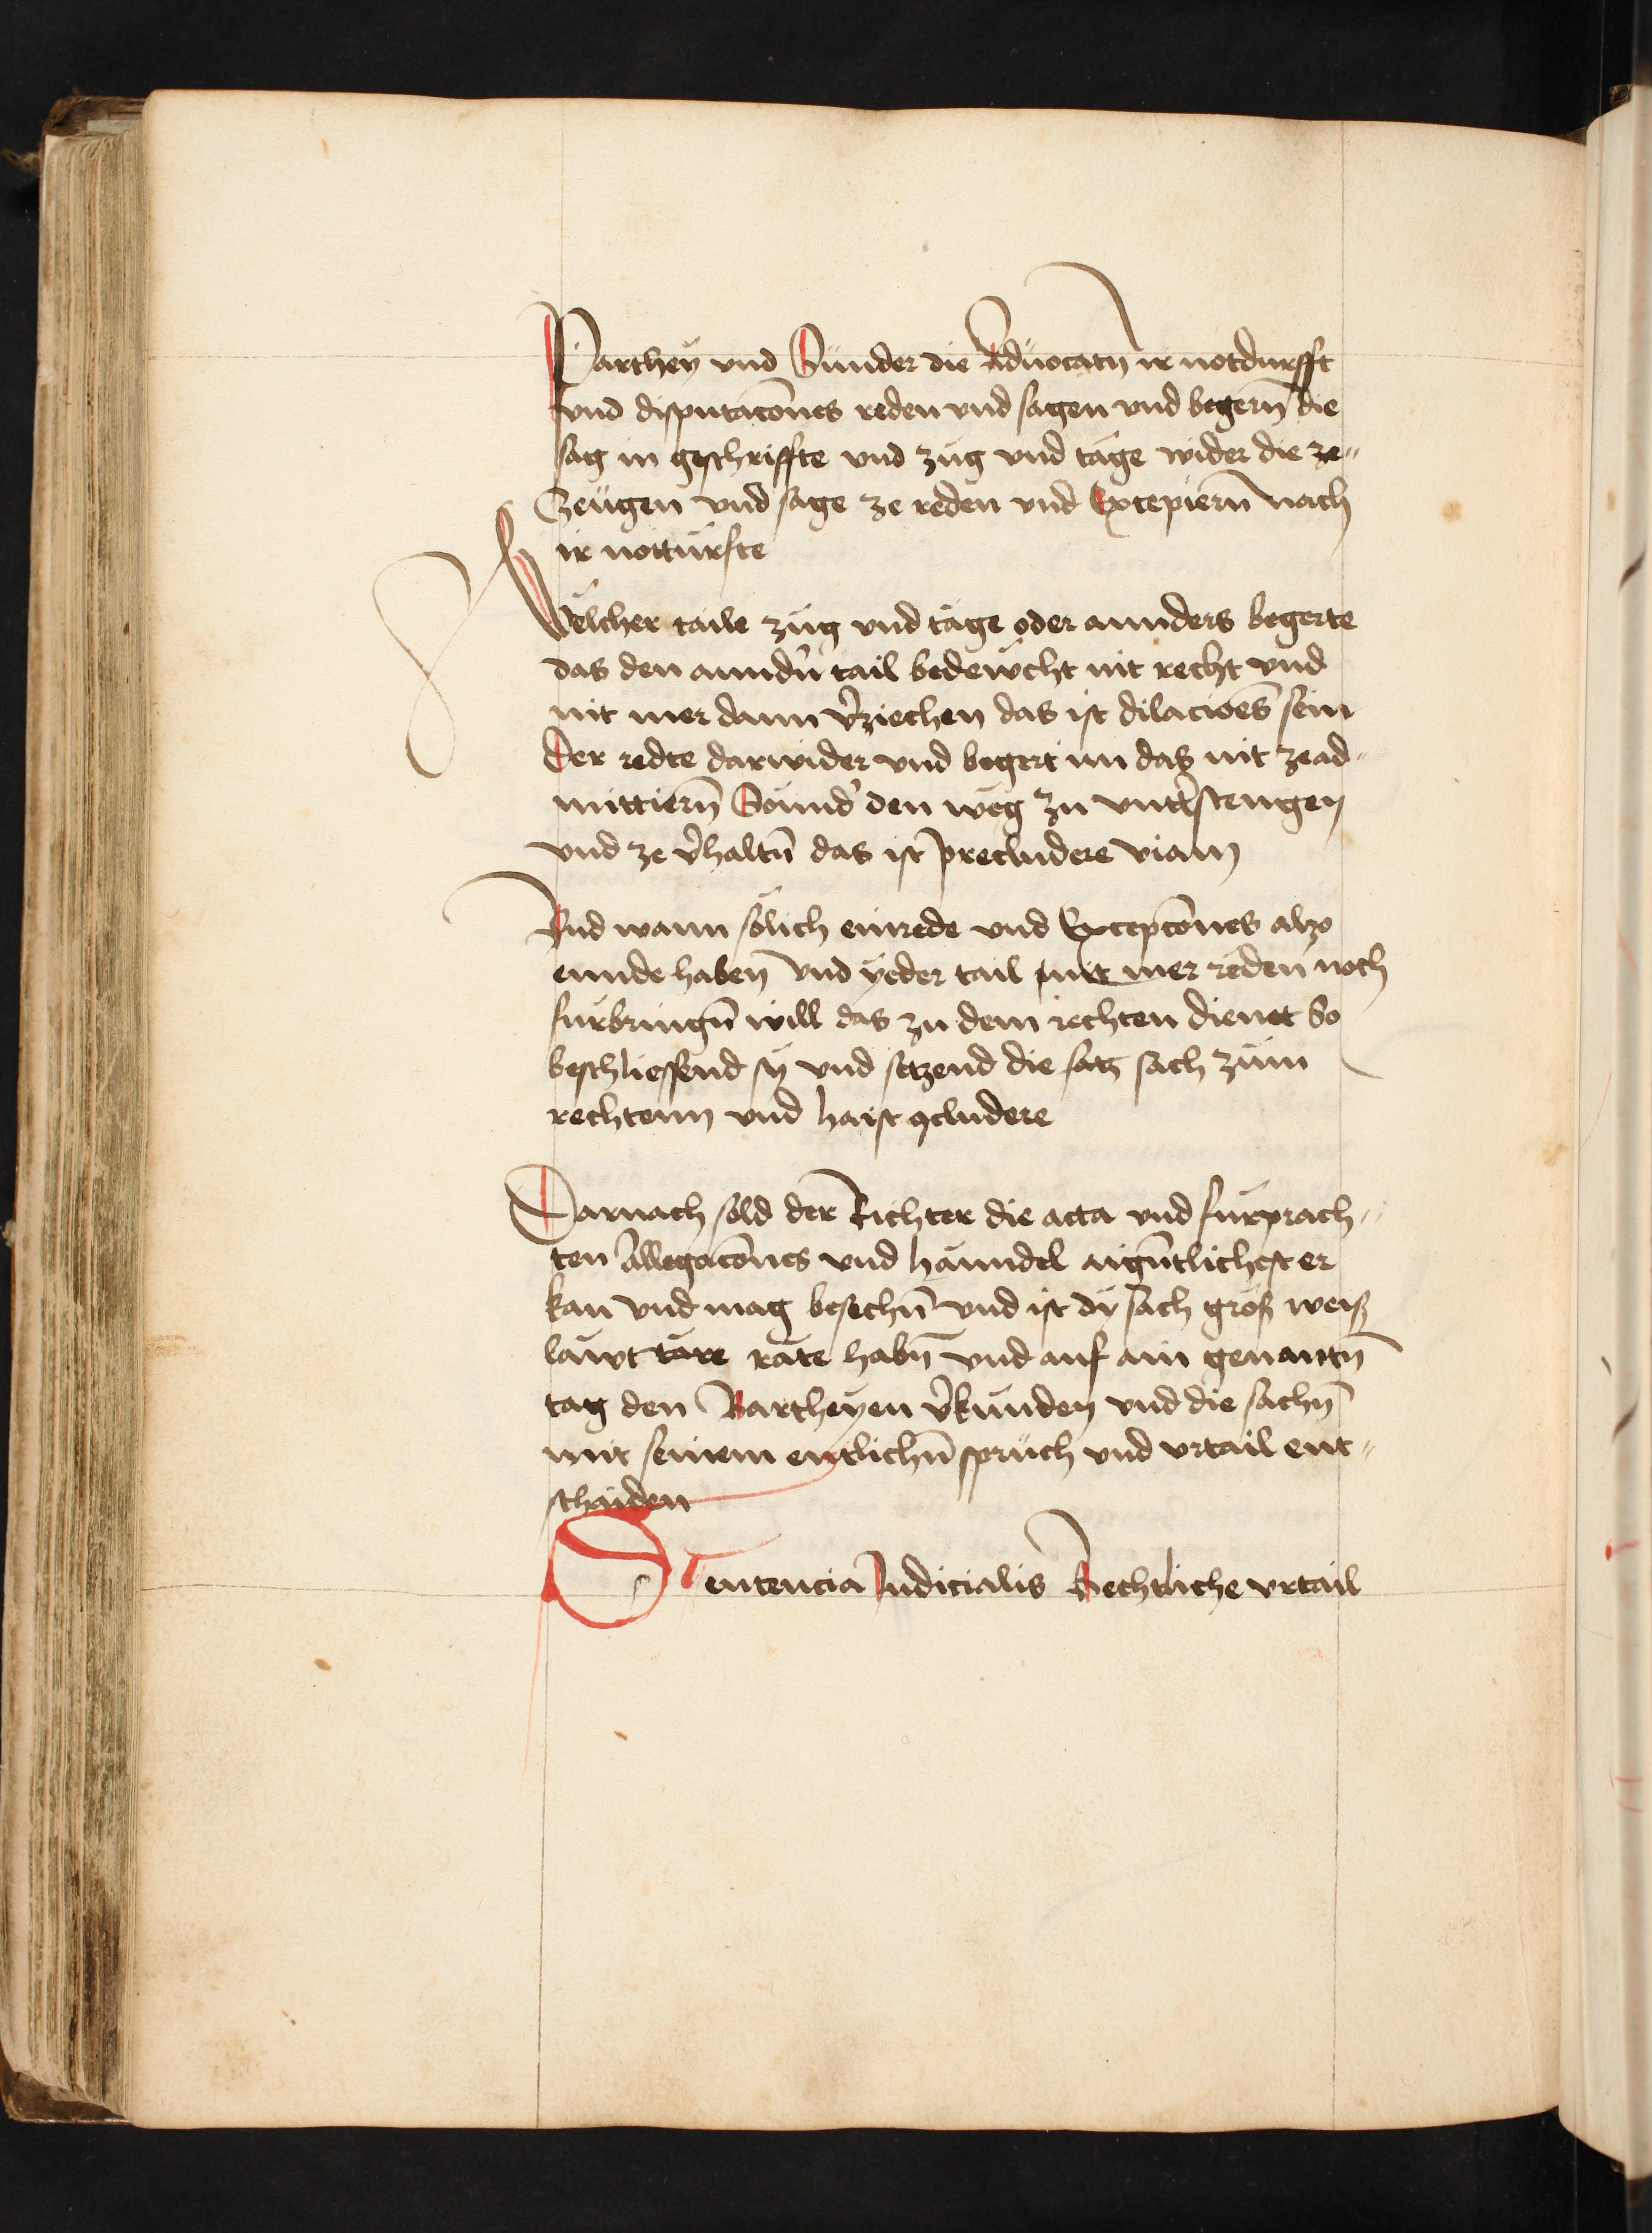 Parthey vnd Sunder die Aduocatn̄ ir notdurfft
vnd disputatōnes reden vnd sagen vnd begern̄ die
sag in geschriffte vnd zug vnd tage wider die ze„
Zeugen vnd sage ze reden vnd Excepiern̄ nach
ir notturfte
Welcher taile zug vnd tage oder annders begerte
das den anndn̄ tail bedewcht nit recht vnd
nit mer dann v̄ziechen das ist dilacioēs sein
Der redte darwider vnd begert im das nit zead„
mittiern̄ Sonnd̄ den weg zu vntt̄stengen
vnd ze v̄haltn̄ das ist precludere viam
Vnd wann sölich einrede vnd Exceptōnes also
ennde haben̄ vnd yeder tail nit mer reden noch
furbringn̄ will das zu dem rechten dienet So
beschliessend sy vnd setzend die satz sach zum
rechtenn vnd haist ꝯcludere
Darnach sold der Richter die acta vnd furprach„
ten Allegatōnes vnd hanndel aign̄tlichest er
kan vnd mag besechn̄ vnd ist dy sach groß weiß
läwt räte habn̄ vnd auf ain genantn̄
tag den Partheyen v̄kunden vnd die sachn̄
mit seinem entlichn̄ spruch vnd vrtail ent„
schaiden
Sentencia Judicialis Rechtliche vrtail